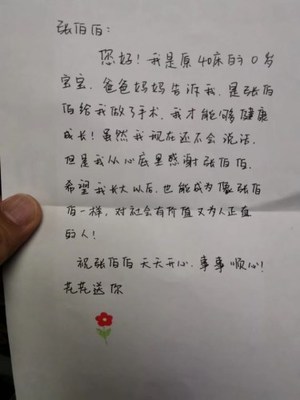 张伯伯：
您好！我是原40床的0岁
宝宝，爸爸妈妈告诉我，是张伯
伯给我做了手术，我才能够健康
成长！虽然我现在还不会说话，
但是我从心底里感谢张伯伯，
希望我长大以后，也能成为像张伯
伯一样，对社会有价值又为人正直
的人！
祝张伯伯天天开心，事事顺心！
花花送你